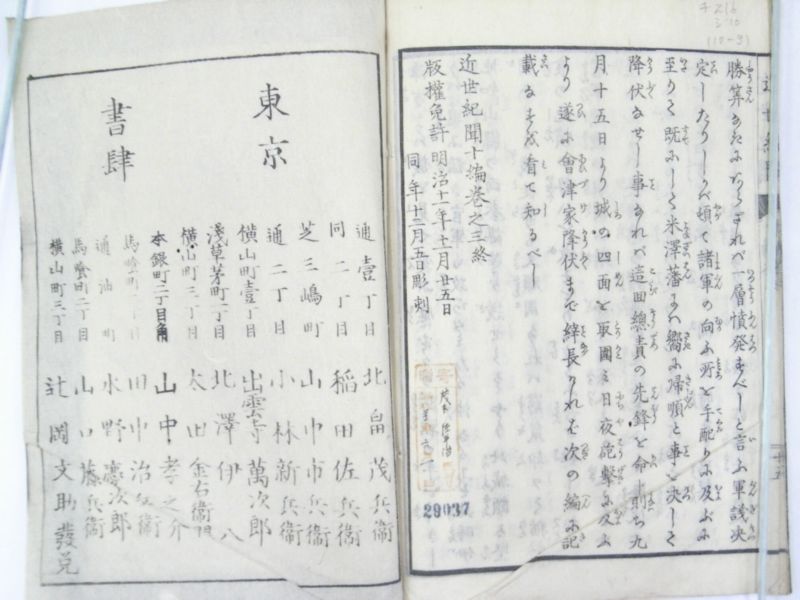 勝算あるにあらざれバ一層憤発すべしと言ふ軍議决
定したりしかバ頓て諸軍の向ふ所を手配りに及ぶに
至りて既にして米澤藩にハ嚮に帰順と事を决して
降伏なせし事なれバ這回總責の先鋒を命ず則ち九
月十五日より城の四面を取圍み日夜砲撃に及ぶ
より遂に會津家降伏まで緯長けれバ次の編に記
載なすを看て知るべし
近世紀聞十編巻之三終
版權免許明治十一年十月廿五日
同年十二月五日彫刻
29037
東京
書肆
通壹丁目 北畠茂兵衛
同二丁目 稲田佐兵衛
芝三嶋町 山中市兵衛
通二丁目 小林新兵衛
横山町壹丁目 出雲寺萬次郎
淺草茅町二丁目 北澤伊八
横山町三丁目 太田金右衛門
本銀町二丁目角 山中孝之介
馬喰町二丁目 田中治兵衛
通油町 水野慶次郎
馬喰町二丁目 山口藤兵衛
横山町三丁目 辻岡文助發兌